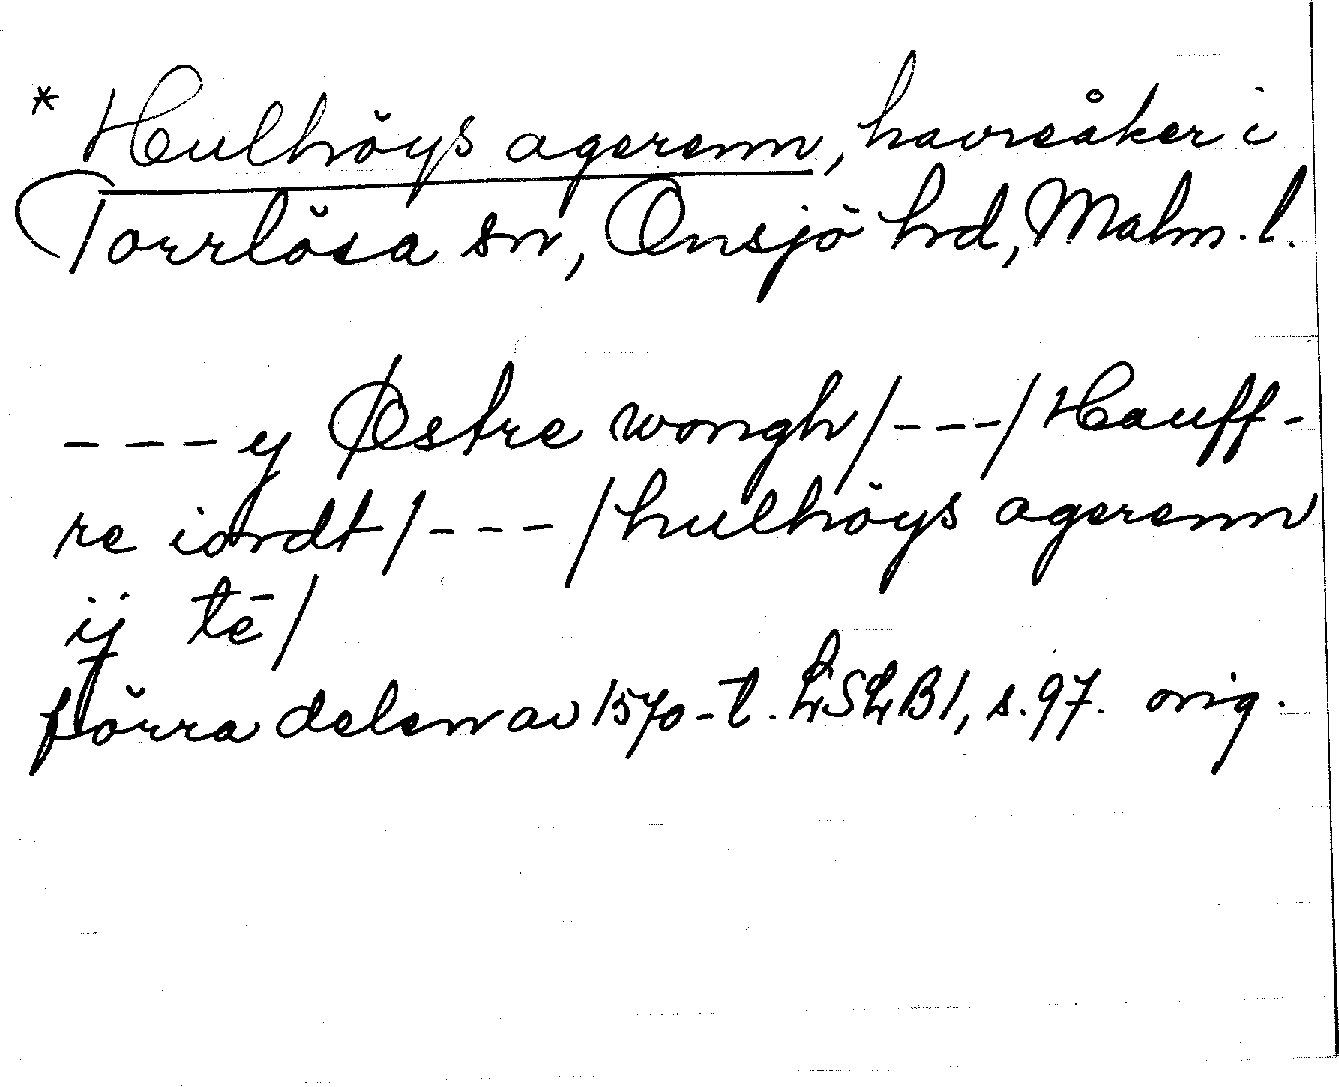 * Hulhöys agerenn, havreåker i
Torrlösa sn, Onsjö hd, Malm. l.
- - - y Østre wongh/- - -/Hauff-
re iordt/- - -/hulhöys agerenn
ij tē/
förra delen av 1570-t. LSLB1, s. 97. orig.